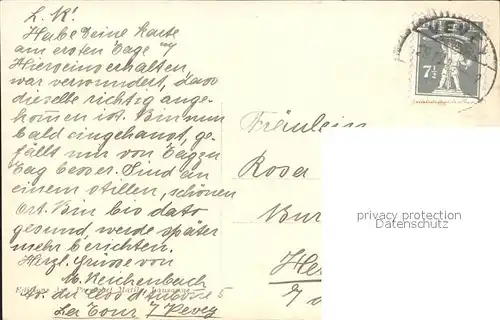 L. K!
Habe Deine Karte
am ersten Tage m/
Hierseins erhalten,
war verwundert, dass
dieselle richtig ange-
kommen ist. Bin nun
bald eingehaust, ge-
fällt mir von Tag zu
Tag besser. Sind an
einem stillen, schönen
Ort. Bin bis dato
gesund, werde später
mehr berichten.
Herzl. Grüsse von
M. Reichenbach
La Tour / Vevey
VEVEY
7½
Fräulein
Rosa
privacy protection
Datenschutz